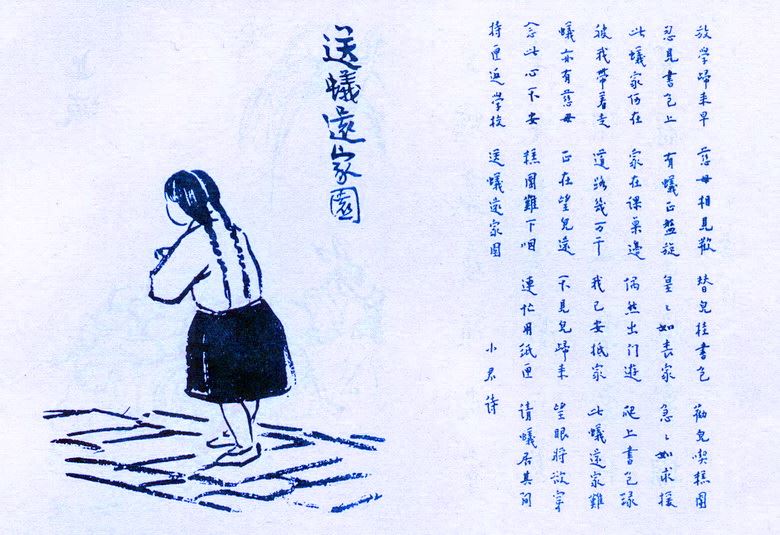 放學歸來早 慈母相見歡 替兒挂書包 勸兒喫糕團
忽見書包上 有蟻正盤旋 皇々如喪家 急々如求援
此蟻家何在 家在課桌邊 偶然出門遊 爬上書包緣
被我帶着走 道路幾万千 我已安抵家 此蟻還家難
蟻亦有慈母 正在望兒還 不見兒歸來 望眼將欲穿
念此心不安 糕團難下咽 連忙用紙匣 請蟻居其間
持匣返學校 送蟻還家園 小君詩
送蟻還家園